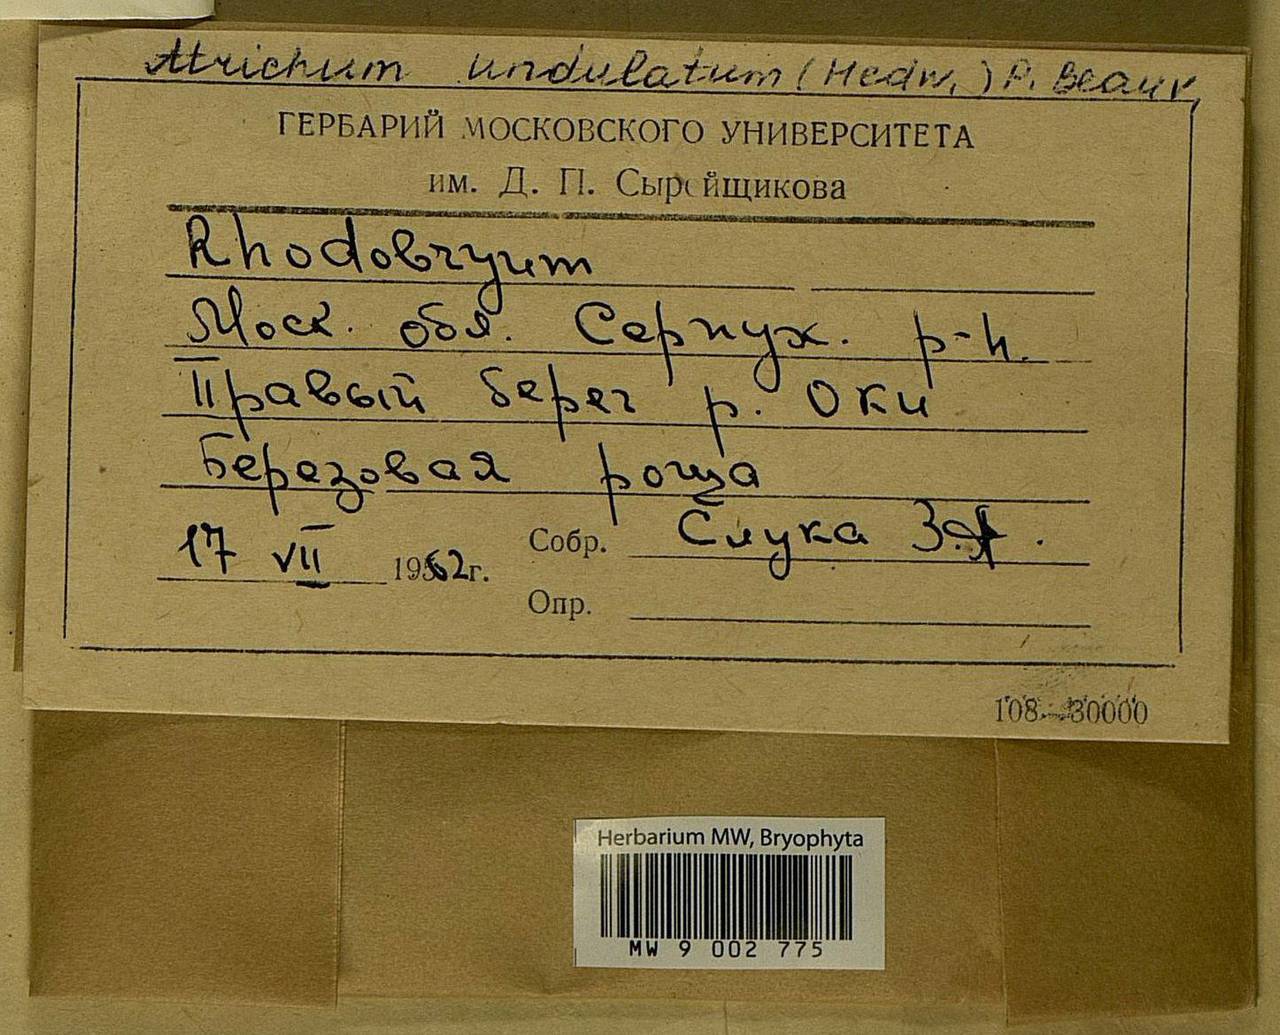 Atrichum undulatum (Hedw.) P. Beauv.
ГЕРБАРИЙ МОСКОВСКОГО УНИВЕРСИТЕТА
им. Д. П. Сырейщикова
Rhodobryum
Моск. обл. Серпух. р-н.
Правый берег р. Оки
Березовая роща
17 VII 1962г.
Собр. Слука З.
Опр.
108—30000
Herbarium MW, Bryophyta
MW 9 002 775